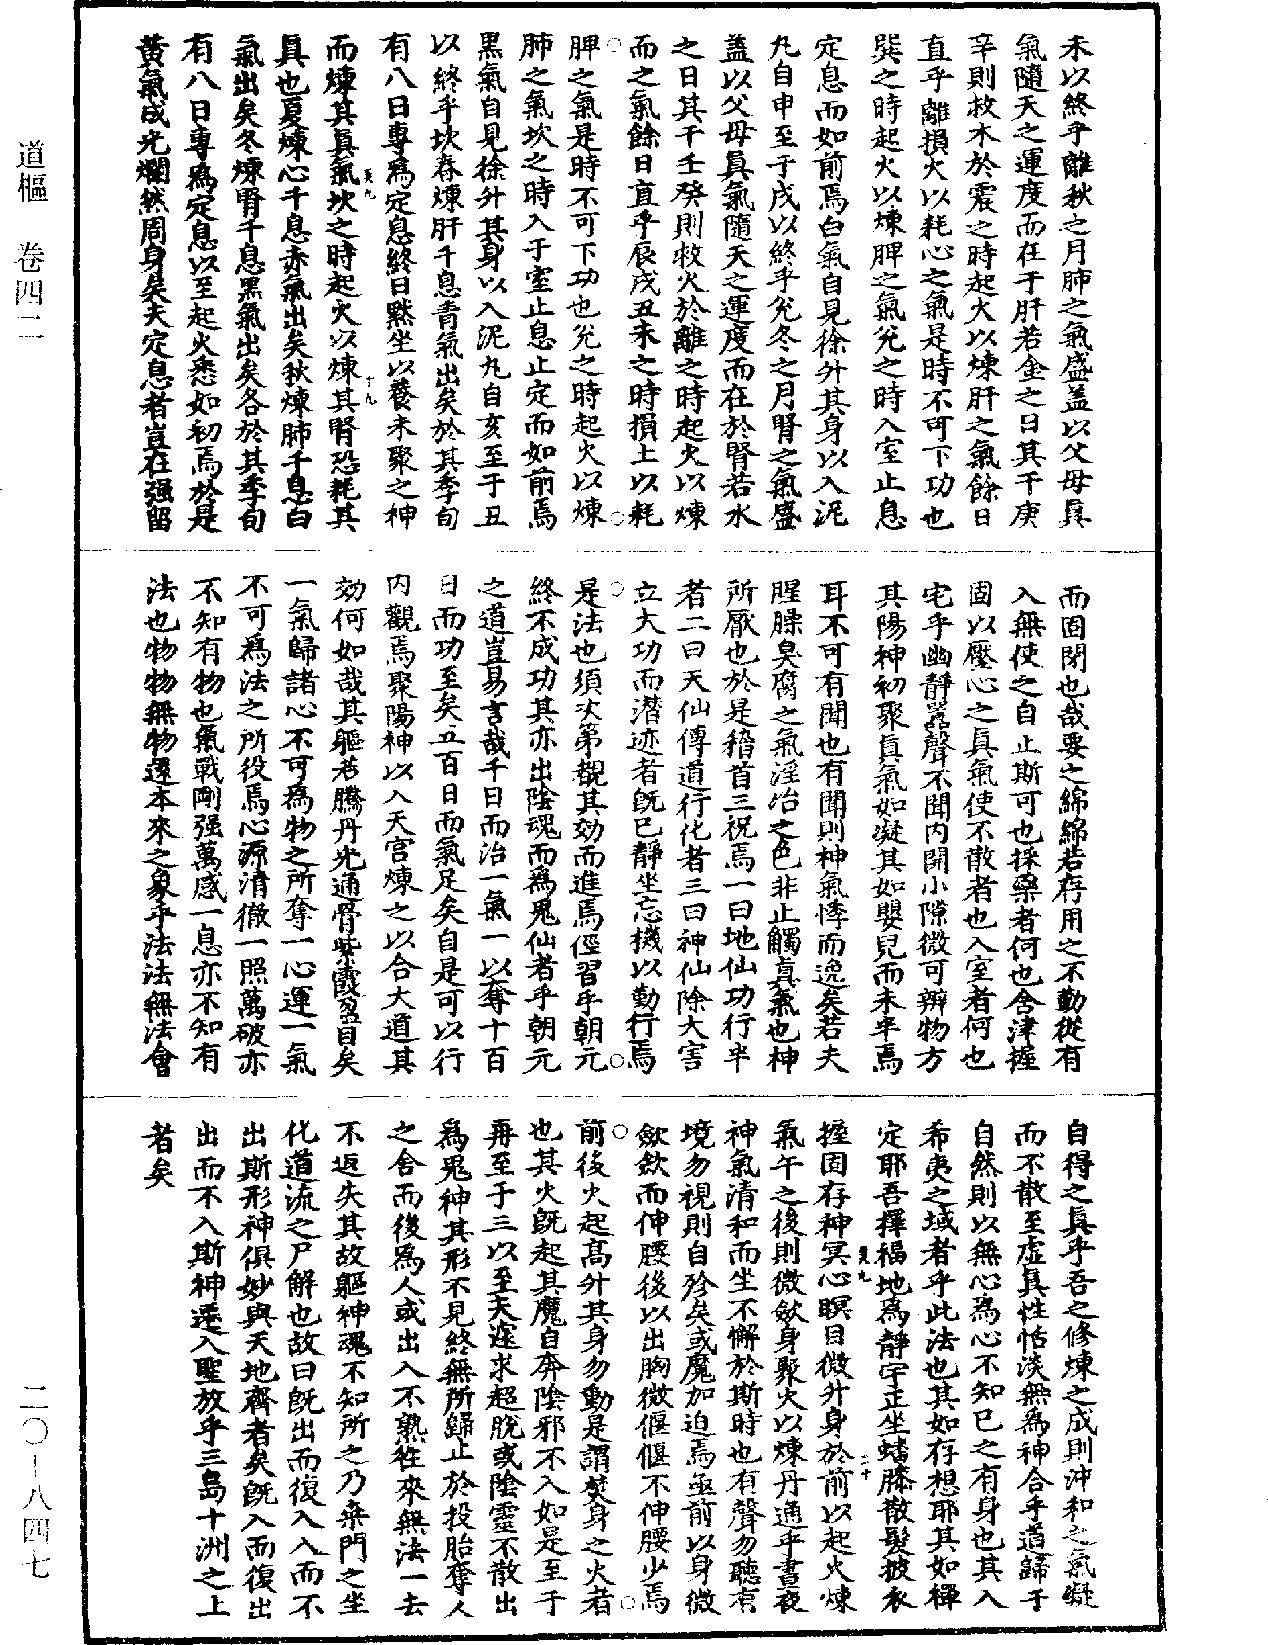 道樞 卷四二
未以終乎離秋之月肺之氣盛蓋以父母真
氣隨天之運度而在于肝若金之日其干庚
辛則救木於震之時起火以煉肝之氣餘日
直乎離損火以耗心之氣是時不可下功也
巽之時起火以煉脾之氣兊之時入室止息
定息而如前焉白氣自見徐升其身以入泥
九自申至于戌以終乎兊冬之月腎之氣盛
蓋以父母真氣隨天之運度而在於腎若水
之日其干壬癸則救火於離之時起火以煉
而之氣餘日直乎辰戌丑未之時損土以耗
脾之氣是時不可下功也兊之時起火以煉
肺之氣坎之時入于室止息止定而如前焉
黑氣自見徐升其身以入泥九自亥至于丑
以終乎坎春煉肝千息青氣出矣於其季旬
有八日專為定息終日默坐以養未聚之神
而煉其真氣坎之時起火以煉其腎恐耗其
真也夏煉心千息赤氣出矣秋煉肺千息白
氣出矣冬煉腎千息黑氣出矣各於其季旬
有八日專為定息以至起火悉如初焉於是
黃氣成光爛然周身矣夫定息者豈在强留
而固閉也哉要之綿綿若存用之不動從有
入無使之自止斯可也採藥者何也含津握
固以壓心之真氣使不散者也入室者何也
宅乎幽靜囂聲不聞内開小隙微可辨物方
其陽神初聚真氣如凝其如嬰兒而未牢焉
耳不可有聞也有聞則神氣悸而逸矣若夫
腥臊臭腐之氣淫冶之色非止觸真氣也神
所厭也於是稽首三祝焉一曰地仙功行半
者二曰天仙傳道行化者三曰神仙除大害
立大功而潛迹者既已靜坐忘機以勤行焉
是法也須次第觀其効而進焉徑習乎朝元
終不成功其亦出陰魂而為鬼仙者乎朝元
之道豈易言哉千日而治一氣一以奪十百
日而功至矣五百日而氣足矣自是可以行
内觀焉聚陽神以入天宮煉之以合大道其
効何如哉其軀若騰丹光通骨紫霞盈目矣
一氣歸諸心不可為物之所奪一心運一氣
不可為法之所役焉心源清徹一照萬破亦
不知有物也氣戰剛强萬感一息亦不知有
法也物物無物還本來之象乎法法無法會
自得之真乎吾之修煉之成則沖和之氣凝
而不散至虛真性恬淡無為神合乎道歸于
自然則以無心為心不知已之有身也其入
希夷之域者乎此法也其如存想耶其如禪
定耶吾擇福地為靜宇正坐蟠膝散髮披衣
握固存神冥心瞑目微升身於前以起火煉
氣午之後則微斂身聚火以煉丹通乎晝夜
神氣清和而坐不懈於斯時也有聲勿聽有
境勿視則自殄矣或魔加迫焉亟前以身微
斂斂而伸腰後以出胸微偃偃不伸腰少焉
前後火起高升其身勿動是謂焚身之火者
也其火既起其魔自奔陰邪不入如是至于
再至于三以至天遂求超脫或陰靈不散出
為鬼神其形不見終無所歸止於投胎奪人
之舍而後為人或出入不熟往來無法一去
不返失其故軀神魂不知所之乃桑門之坐
化道流之尸解也故曰既出而復入入而不
出斯形神俱妙與天地齊者矣既入而復出
出而不入斯神遷入聖放乎三島十洲之上
者矣
二〇-八四七